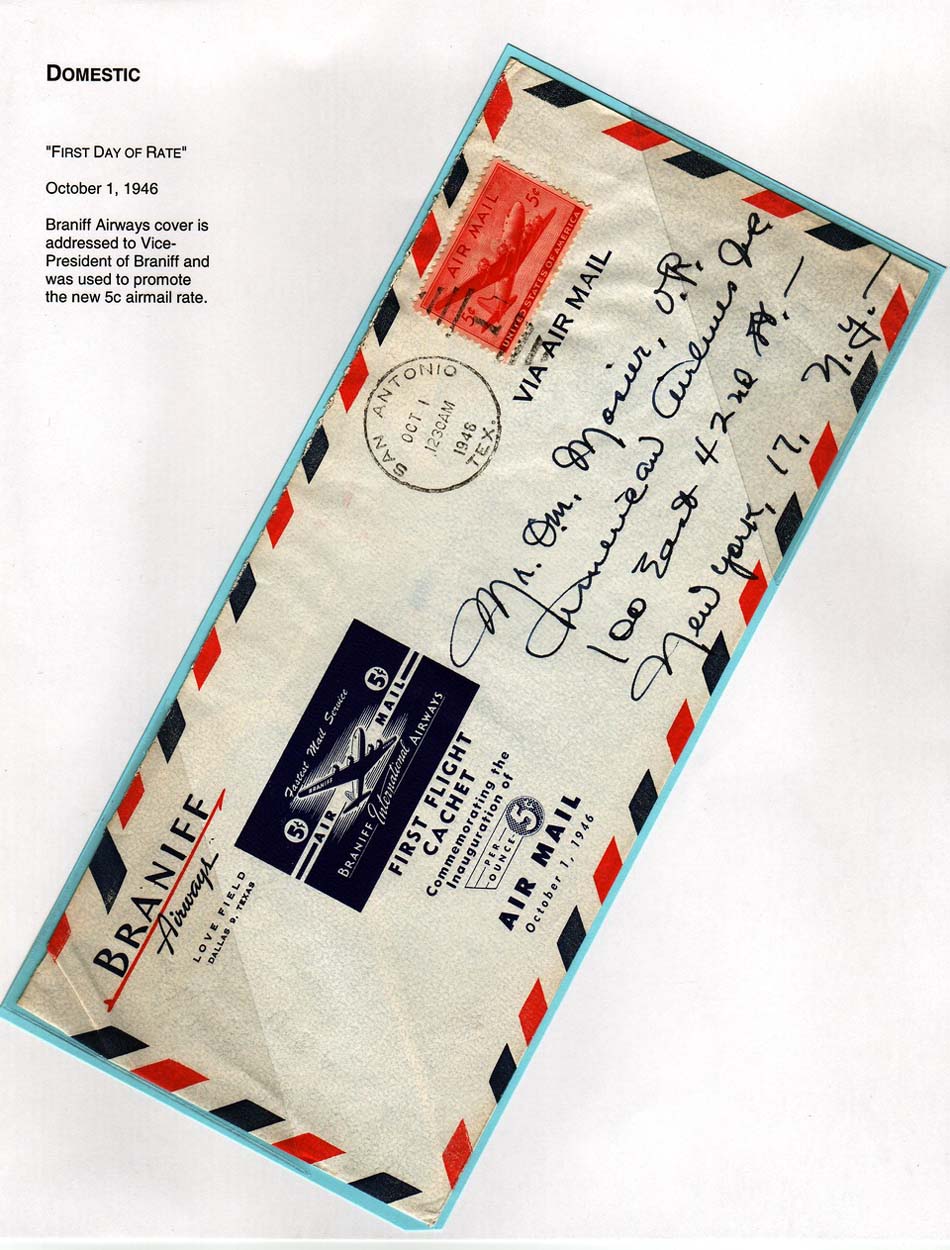 DOMESTIC
"FIRST DAY OF RATE"
October 1, 1946
Braniff Airways cover is
addressed to Vice-
President of Braniff and
was used to promote
the new 5c airmail rate.
BRANIFF
Airways
LOVE FIELD
DALLAS 9, TEXAS
AIR MAIL
5¢
5¢
UNITED STATES OF AMERICA
SAN ANTONIO
OCT 1
1230AM
1946
TEX.
VIA AIR MAIL
Mr. O.M. Mosier, V.P.
American Airlines Inc
100 East 42nd St.—
New York, 17, N.Y.—
Fastest Mail Service
5¢ AIR MAIL 5¢
BRANIFF
BRANIFF International AIRWAYS
FIRST FLIGHT
CACHET
Commemorating the
Inauguration of
PER
OUNCE
5¢
AIR MAIL
October 1, 1946